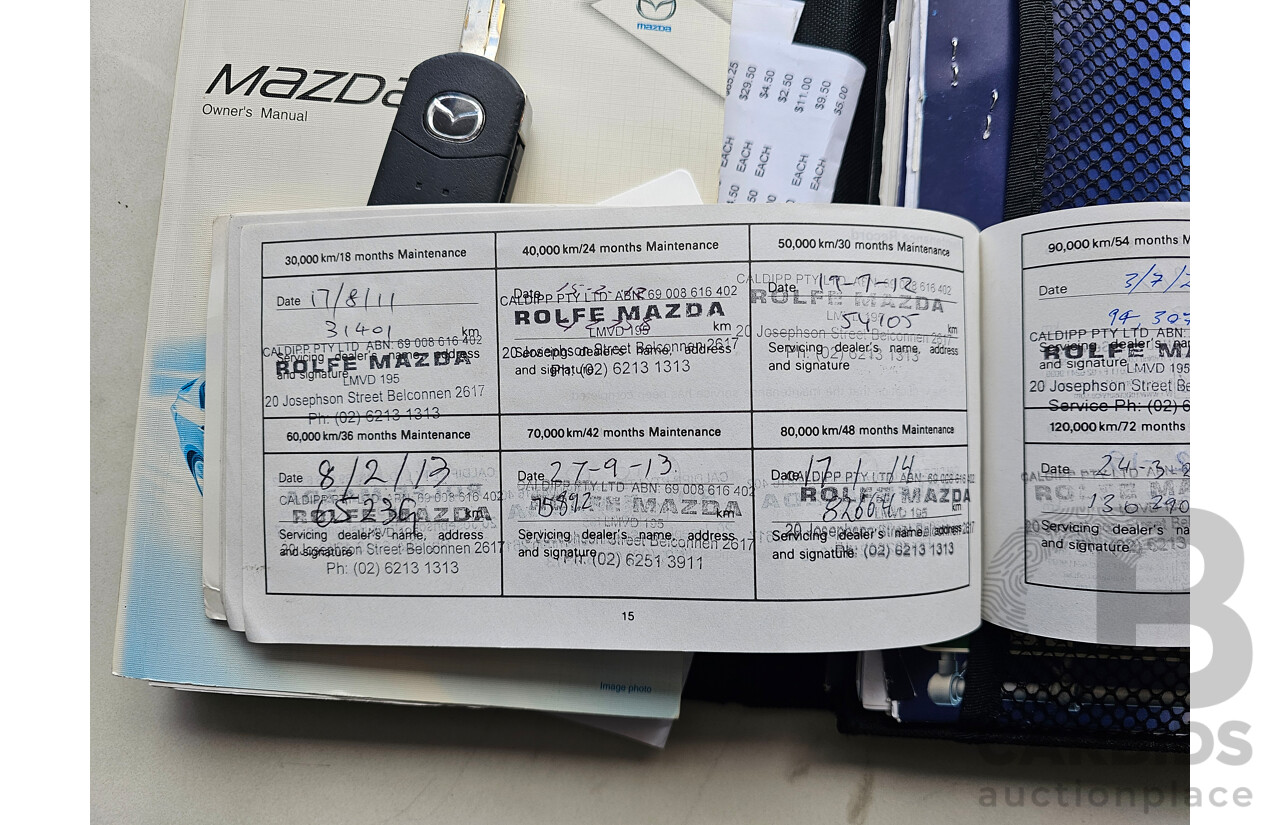 mazda
Mazda
Owner's Manual
$29.50
$4.50
$2.50
$11.00
$9.50
$5.00
EACH
EACH
EACH
EACH
30,000 km/18 months Maintenance
Date 17/8/11
31401 km
CALDIPP PTY LTD ABN: 69 008 616 402
Servicing dealer's name, address
ROLFE MAZDA
and signature
LMVD 195
20 Josephson Street Belconnen 2617
Ph: (02) 6213 1313
40,000 km/24 months Maintenance
Date
CALDIPP PTY LTD ABN: 69 008 616 402
ROLFE MAZDA
LMVD 195 km
20 Josephson Street Belconnen 2617
Servicing dealer's name, address
and signature
Ph: (02) 6213 1313
50,000 km/30 months Maintenance
CALDIPP PTY LTD ABN: 69 008 616 402
Date 17-7-12
ROLFE MAZDA
54905 km
20 Josephson Street Belconnen
Servicing dealer's name, address
Ph: (02) 6213 1313
and signature
60,000 km/36 months Maintenance
Date 8/2/13
CALDIPP PTY LTD ABN: 69 008 616 402
ROLFE MAZDA
km
Servicing dealer's name, address
20 Josephson Street Belconnen 2617
and signature
Ph: (02) 6213 1313
70,000 km/42 months Maintenance
Date 27-9-13.
CALDIPP PTY LTD ABN: 69 008 616 402
75892
ROLFE MAZDA
km
LMVD 195
Servicing dealer's name, address
20 Josephson Street Belconnen 2617
and signature
Ph: (02) 6251 3911
80,000 km/48 months Maintenance
Date 17/1/14
CALDIPP PTY LTD ABN: 69 008 616 402
ROLFE MAZDA
82664 km
20 Josephson Street Belconnen 2617
Servicing dealer's name, address
and signature
Ph: (02) 6213 1313
15
90,000 km/54 m
Date 3/7/
94,307
CALDIPP PTY LTD ABN:
ROLFE MA
Servicing dealer's na
and signature
LMVD 195
20 Josephson Street Be
Service Ph: (02) 6
120,000 km/72 months
Date 24-3-
130290
Servicing dealer's na
and signature
Image photo
B
CARBIDS
auctionplace